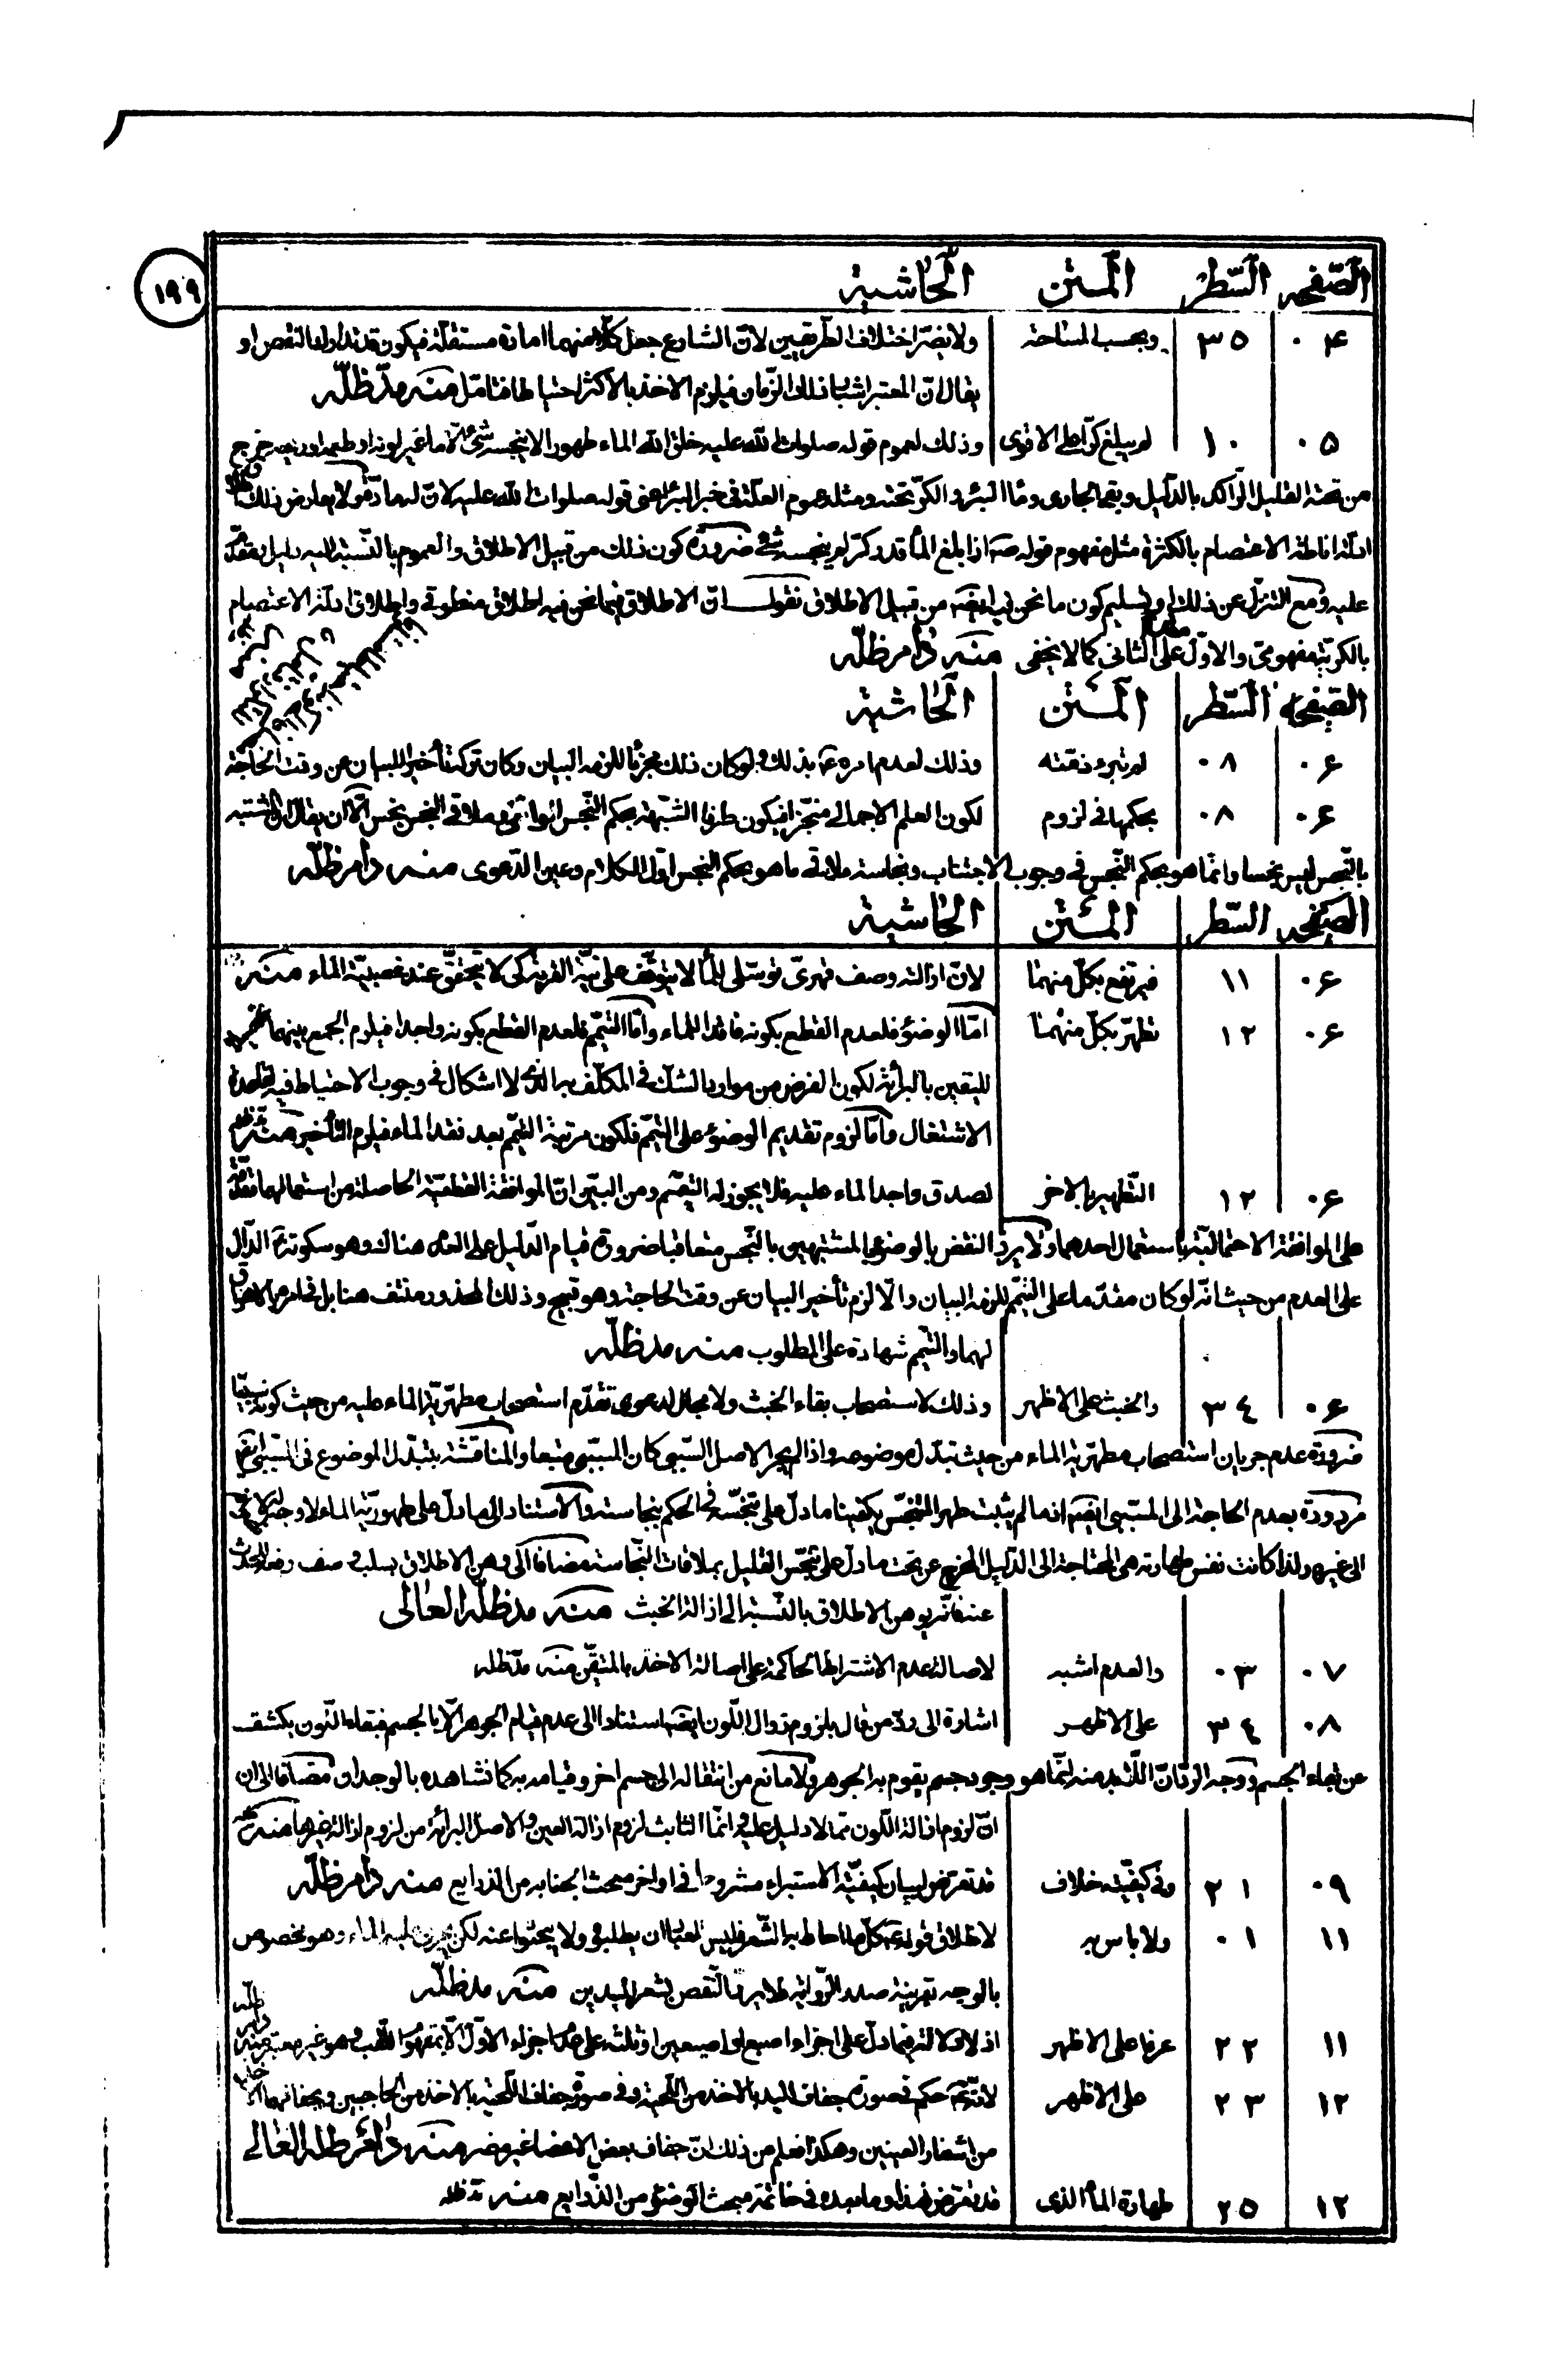 ١٩٩
الصّفحه السّطر المتن الحاشية
٠٤ ٣٥ وبحسب المساحة ولا يضرّ اختلاف الطّريقين لانّ الشارع جعل كلّا منهما امارة مستقلّة فيكون قد تداولها النقص او
يقال انّ المعتبر اشبار ذلك الزّمان فيلزم الاخذ بالاكثر احتياطا فتامّل منه مدّ ظلّه
٠٥ ١٠ لم يبلغ كرّا على الاقوى وذلك لعموم قوله صلوات الله عليه خلق الله الماء طهورا لا ينجسه شئ الّا ما غير لونه او طعمه او ريحه خرج
من تحته القليل الرّاكد بالدّليل وبقى الجارى وماء البئر والكرّ تحته ومثله عموم العلّة فى خبر البئر اعنى قوله صلوات الله عليه لانّ لها مادّة ولا يعارض ذلك
ادلّة اناطة الاعتصام بالكثرة مثل مفهوم قوله اذا بلغ الماء قدر كرّ لم ينجسه شئ ضرورة كون ذلك من قبيل الاطلاق والعموم بالنّسبة اليه دليل يتقدّم
عليه ومع التنزّل عن ذلك وتسليم كون ما نحن فيه ايضا من قبيل الاطلاق نقول انّ الاطلاق فيما نحن فيه اطلاق منطوقى واطلاق ادلّة الاعتصام
بالكرية مفهومى والاوّل مقدّم على الثانى كما لا يخفى منه دام ظلّه
الصّفحه السّطر المتن الحاشية
٠٦ ٠٨ لم تبرء ذمّته وذلك لعدم امره بذلك ولو كان ذلك مجزئا للزمه البيان وكان تركه تأخيرا للبيان عن وقت الحاجة
٠٦ ٠٨ بحكمها فى لزوم لكون العلم الاجمالى منجّزا فيكون طرفا الشّبهة بحكم النّجس الواقعى وملاقى النجس نجس الّا ان يقال انّ المشتبه
بالنّجس ليس نجسا وانّما هو بحكم النّجس فى وجوب الاجتناب ونجاسة ملاقى ما هو بحكم النجس اوّل الكلام وعين الدّعوى منه دام ظلّه
الصّفحه السّطر المتن الحاشية
٠٦ ١١ فيرتفع بكلّ منهما لانّ ازالته وصف قهرىّ توصّلى للماء لا يتوقّف على نيّة القربة كى لا يتحقّق عند غصبيّة الماء منه
٠٦ ١٢ تطهّر بكلّ منهما امّا الوضوء فلعدم القطع بكونه فاقد الماء وامّا التيمّم فلعدم القطع بكونه واجدا فيلزم الجمع بينهما
لليقين بالبرائة لكون الفرض من موارد الشك فى المكلّف به الّذى لا اشكال فى وجوب الاحتياط فيه لقاعدة
الاشتغال وامّا لزوم تقديم الوضوء على التيمّم فلكون مرتبة التيمّم بعد فقد الماء فيلزم التأخير منه مدّ ظلّه
٠٦ ١٢ التّطهير بالاخر لصدق واجد الماء عليه فلا يجوز له التيمّم ومن البيّن انّ الموافقة القطعيّة الحاصلة من استعمالهما مقدّمة
على الموافقة الاحتماليّة باستعمال احدهما ولا يرد النقض بالوضوء بالمشتبهين بالنّجس متعاقبا ضرورة قيام الدّليل على العدم هناك وهو سكوته الدّال
على العدم من حيث انّه لو كان مقدّما على التيمّم للزمه البيان والّا لزم تأخير البيان عن وقت الحاجة وهو قبيح وذلك المحذور منتف هنا بل فى امره بالاهراق
لهما والتيمّم شهادة على المطلوب منه مدّ ظلّه
٠٦ ٣٤ والخبث على الاظهر وذلك لاستصحاب بقاء الخبث ولا مجال لدعوى تقدّم استصحاب مطهّريّة الماء عليه من حيث كونه سببيّا
ضرورة عدم جريان استصحاب مطهّرية الماء من حيث تبدّل موضوعه واذا لم يجر الاصل السّببى كان المسبّبى متبعا والمناقشة بتبدّل الموضوع فى المسبّبى ايضا
مردودة بعدم الحاجة الى المسبّبى ايضا اذ ما لم يثبت طهر المتنجّس يكفينا ما دلّ على تنجّسه فى الحكم بنجاسته والاستناد الى ما دلّ على طهوريّة الماء لا وجه له
الى غيره ولذا كانت نفس طهارته هى المحتاجة الى الدّليل المخرج عن تحت ما دلّ على تنجّس القليل بملاقات النّجاسة مضافا الى وهن الاطلاق بسلب وصف رفعه الحدث
عنه فانّه يوهن الاطلاق بالنّسبة الى ازالة الخبث منه مدّ ظلّه العالى
٠٧ ٠٣ والعدم اشبه لاصالة عدم الاشتراط الحاكمة على اصالة الاخذ بالمتيقّن منه مدّ ظلّه
٠٨ ٣٤ على الاظهر اشارة الى ردّ من قال بلزوم زوال اللّون ايضا استنادا الى عدم قيام الجوهر الّا بالجسم فبقاء اللّون يكشف
عن بقاء الجسم ووجه الردّ انّ اللّابد منه انّما هو وجود جسم يقوم به الجوهر ولا مانع من انتقاله الى جسم اخر وقيامه به كما نشاهده بالوجدان مضافا الى ان
انّ لزوم ازالة اللّون ممّا لا دليل عليه وانّما الثابت لزوم ازالة العين والاصل البرائة من لزوم ازالة غيرها منه
٠٩ ٢١ وفى كيفيّته خلاف قد تعرّض لبيان كيفيّة الاستبراء مشروحا فى اواخر مبحث الجنابه من الذرايع منه دام ظلّه
١١ ٠١ ولا باس به لاطلاق قوله كلّ ما احاط به الشّعر فليس للعباد ان يطلبوه ولا يبحثوا عنه لكن يجرى عليه الماء وهو مخصوص
بالوجه بقرينة صدر الرّواية فلا يرد النّقص بشعر اليدين منه مدّ ظلّه
١١ ٢٢ عرفا على الاظهر اذ لا دلالة فيما دلّ على اجزاء اصبع او اصبعين او ثلثة على عدم اجزاء الاوّل الّا بمفهوم اللّقب وهو غير معتبر منه دام ظلّه
١٢ ٢٣ على الاظهر لانّه حكم فى صورة جفاف اليد بالاخذ من اللّحية وفى صورة جفاف اللّحية بالاخذ من الحاجبين وبجفافهما
من اشفار العينين وهكذا فعلم من ذلك انّ جفاف بعض الاعضاء غير مضر منه دام ظلّه العالى
١٢ ٢٥ طهارة الماء الذى قد تعرّض لهذا وما بعده فى خاتمة مبحث الوضوء من الذّرايع منه مدّ ظلّه